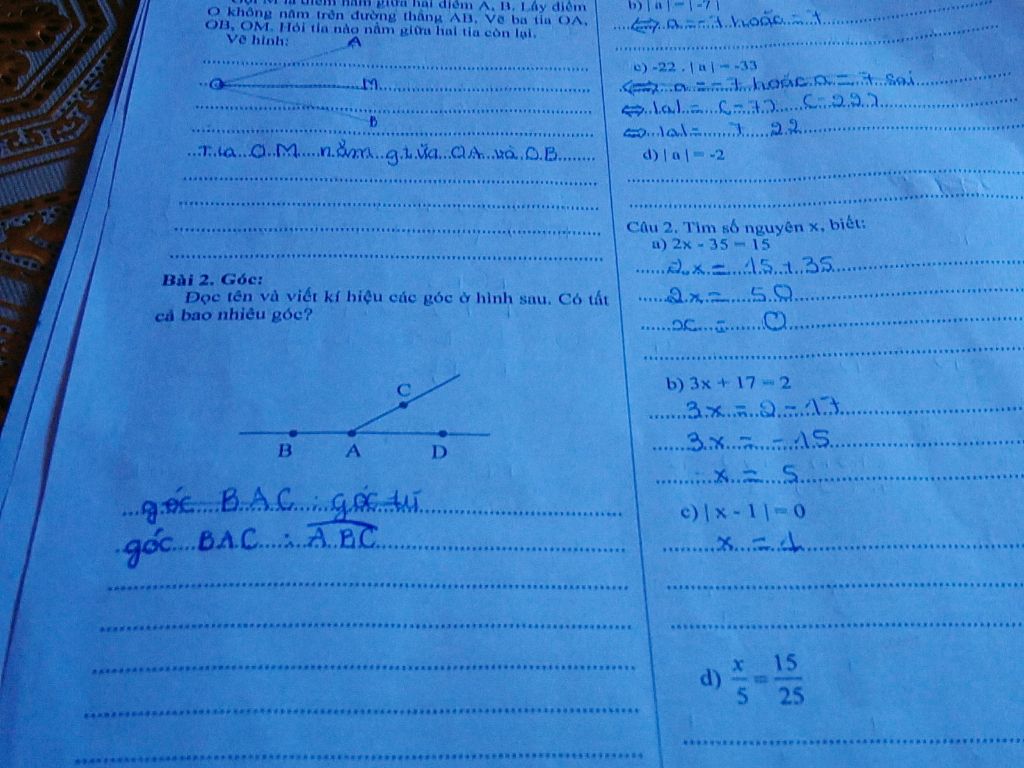 Gọi M là điểm nằm giữa hai điểm A, B. Lấy điểm
O không nằm trên đường thẳng AB. Vẽ ba tia OA,
OB, OM. Hỏi tia nào nằm giữa hai tia còn lại.
Vẽ hình:
A
O
M
B
Tia OM nằm giữa OA và OB
Bài 2. Góc:
Đọc tên và viết kí hiệu các góc ở hình sau. Có tất
cả bao nhiêu góc?
C
B A D
góc BAC : góc tù
góc BAC : ABC
b) | a | = | -7 |
<=> a = -7 hoặc = 7
c) -22 . | a | = -33
<=> a = -7 hoặc a = 7 sai
<=> |a| =
<=> |a| = 7 22
d) | a | = -2
Câu 2. Tìm số nguyên x, biết:
a) 2x - 35 = 15
2x = 15 + 35
2x = 50
x = 0
b) 3x + 17 = 2
3x = 2 - 17
3x = -15
x = 5
c) | x - 1 | = 0
x = 1
d) x/5 = 15/25